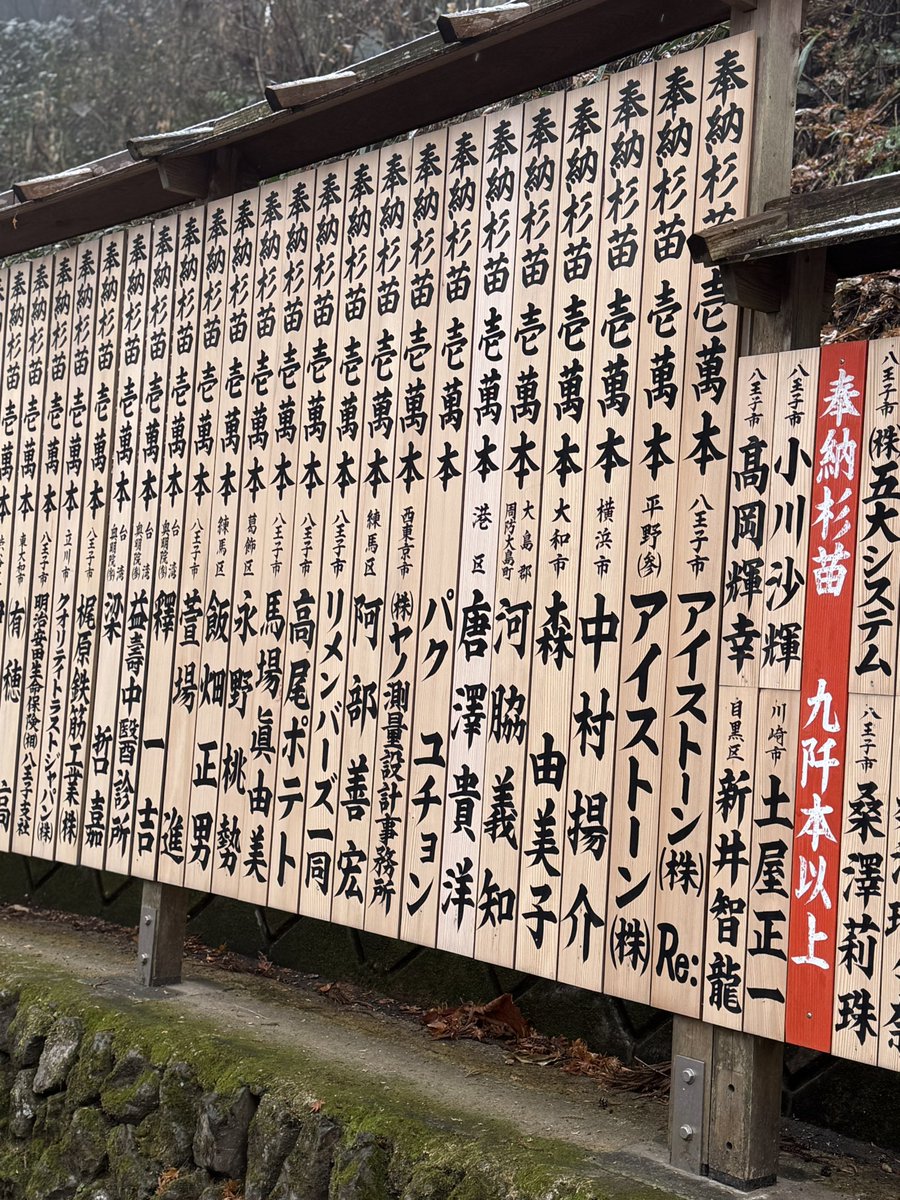 八王子市 (株)五大システム
八王子市 桑澤莉珠
奉納杉苗 九阡本以上
八王子市 小川沙輝
川崎市 土屋正一
八王子市 髙岡輝幸
目黒区 新井智龍
奉納杉苗壱萬本 八王子市 アイストーン(株)Re:
奉納杉苗壱萬本 平野(参) アイストーン(株)
奉納杉苗壱萬本 横浜市 中村揚介
奉納杉苗壱萬本 大和市 森由美子
奉納杉苗壱萬本 大島郡周防大島町 河脇義知
奉納杉苗壱萬本 港区 唐澤貴洋
奉納杉苗壱萬本 パクユチョン
奉納杉苗壱萬本 西東京市 (株)ヤノ測量設計事務所
奉納杉苗壱萬本 練馬区 阿部善宏
奉納杉苗壱萬本 八王子市 リメンバーズ一同
奉納杉苗壱萬本 八王子市 高尾ポテト
奉納杉苗壱萬本 八王子市 馬場眞由美
奉納杉苗壱萬本 葛飾区 永野桃勢
奉納杉苗壱萬本 練馬区 飯畑正男
奉納杉苗壱萬本 八王子市 萱場進
奉納杉苗壱萬本 台湾 釋一吉
奉納杉苗壱萬本 台湾 益壽中醫診所
奉納杉苗壱萬本 台湾 梁哲嘉
奉納杉苗壱萬本 八王子市 梶原鉄筋工業(株)
奉納杉苗壱萬本 立川市 クオリティトラストジャパン(株)
奉納杉苗壱萬本 八王子市 明治安田生命保険(相)八王子支社
奉納杉苗壱萬本 東大和市 有穂高